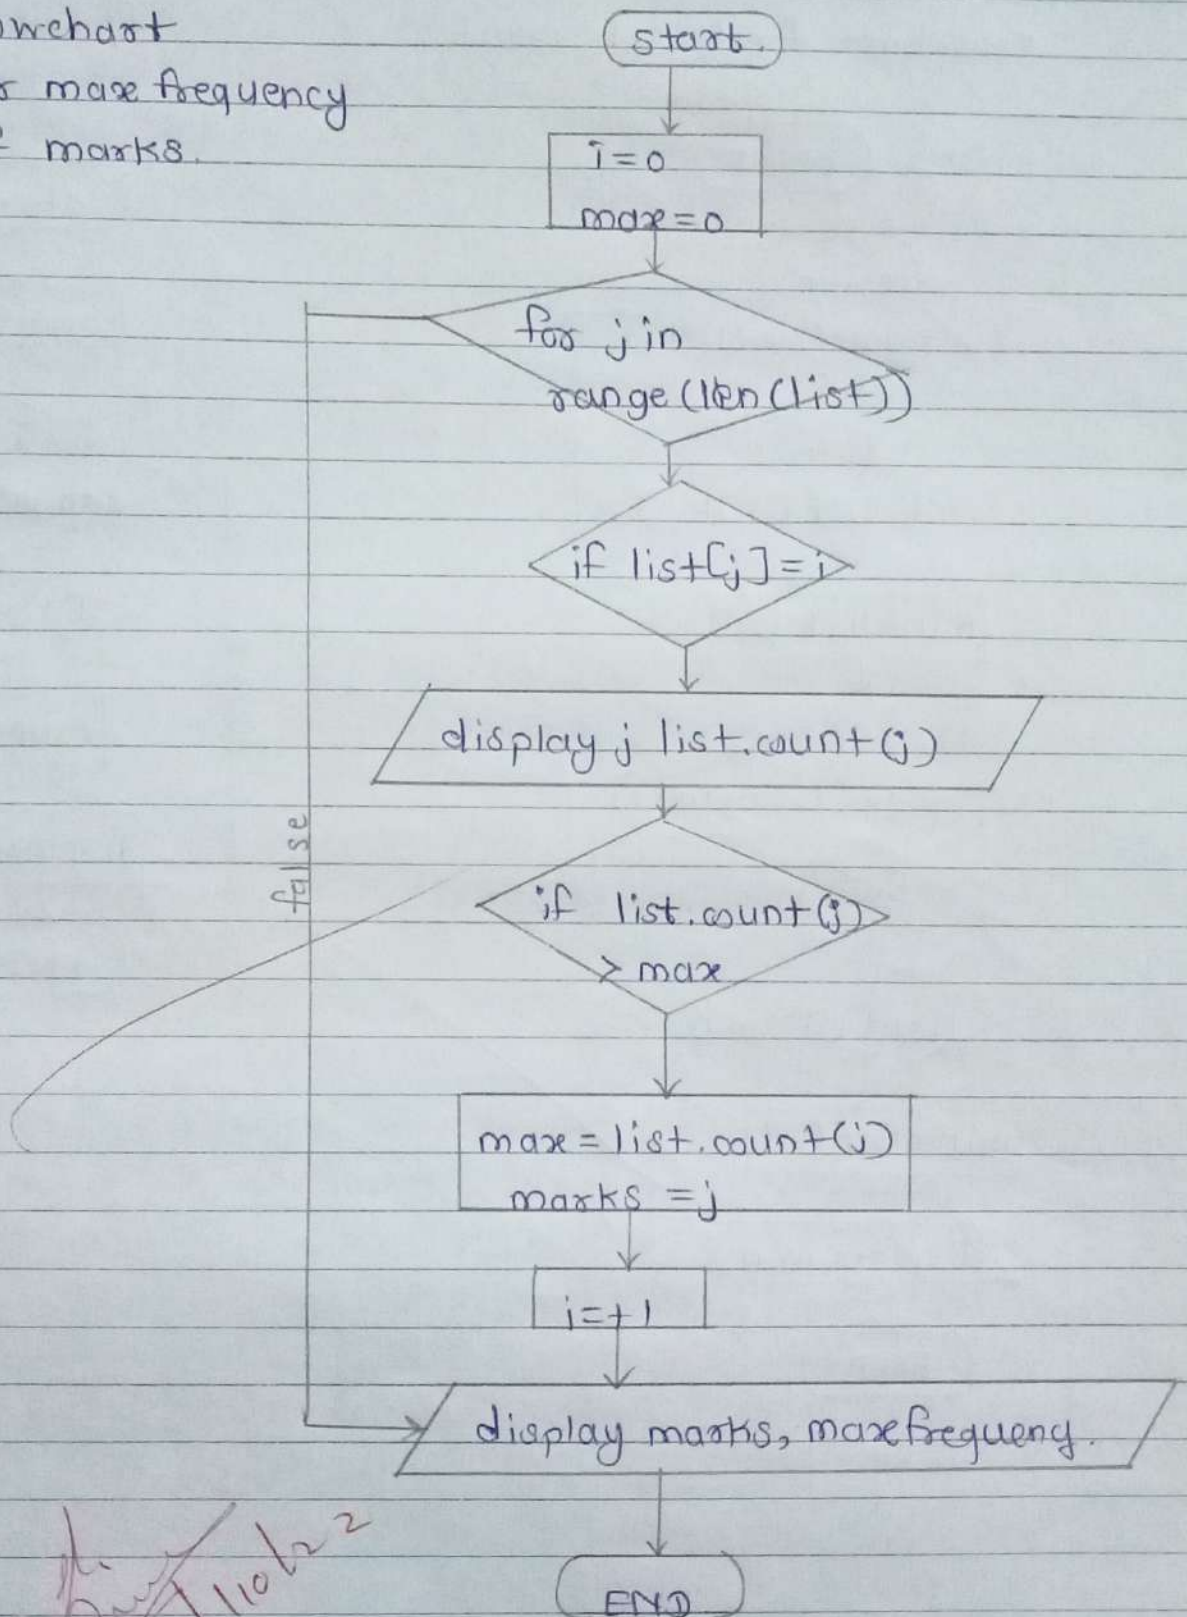 owchart
r max frequency
marks.
start.
i=0
max=0
for j in
range(len(list))
if list[j]=i
display j list.count(j)
false
if list.count(j)
> max
max=list.count(j)
marks =j
i=+1
display marks, maxfrequency.
END
/10/22